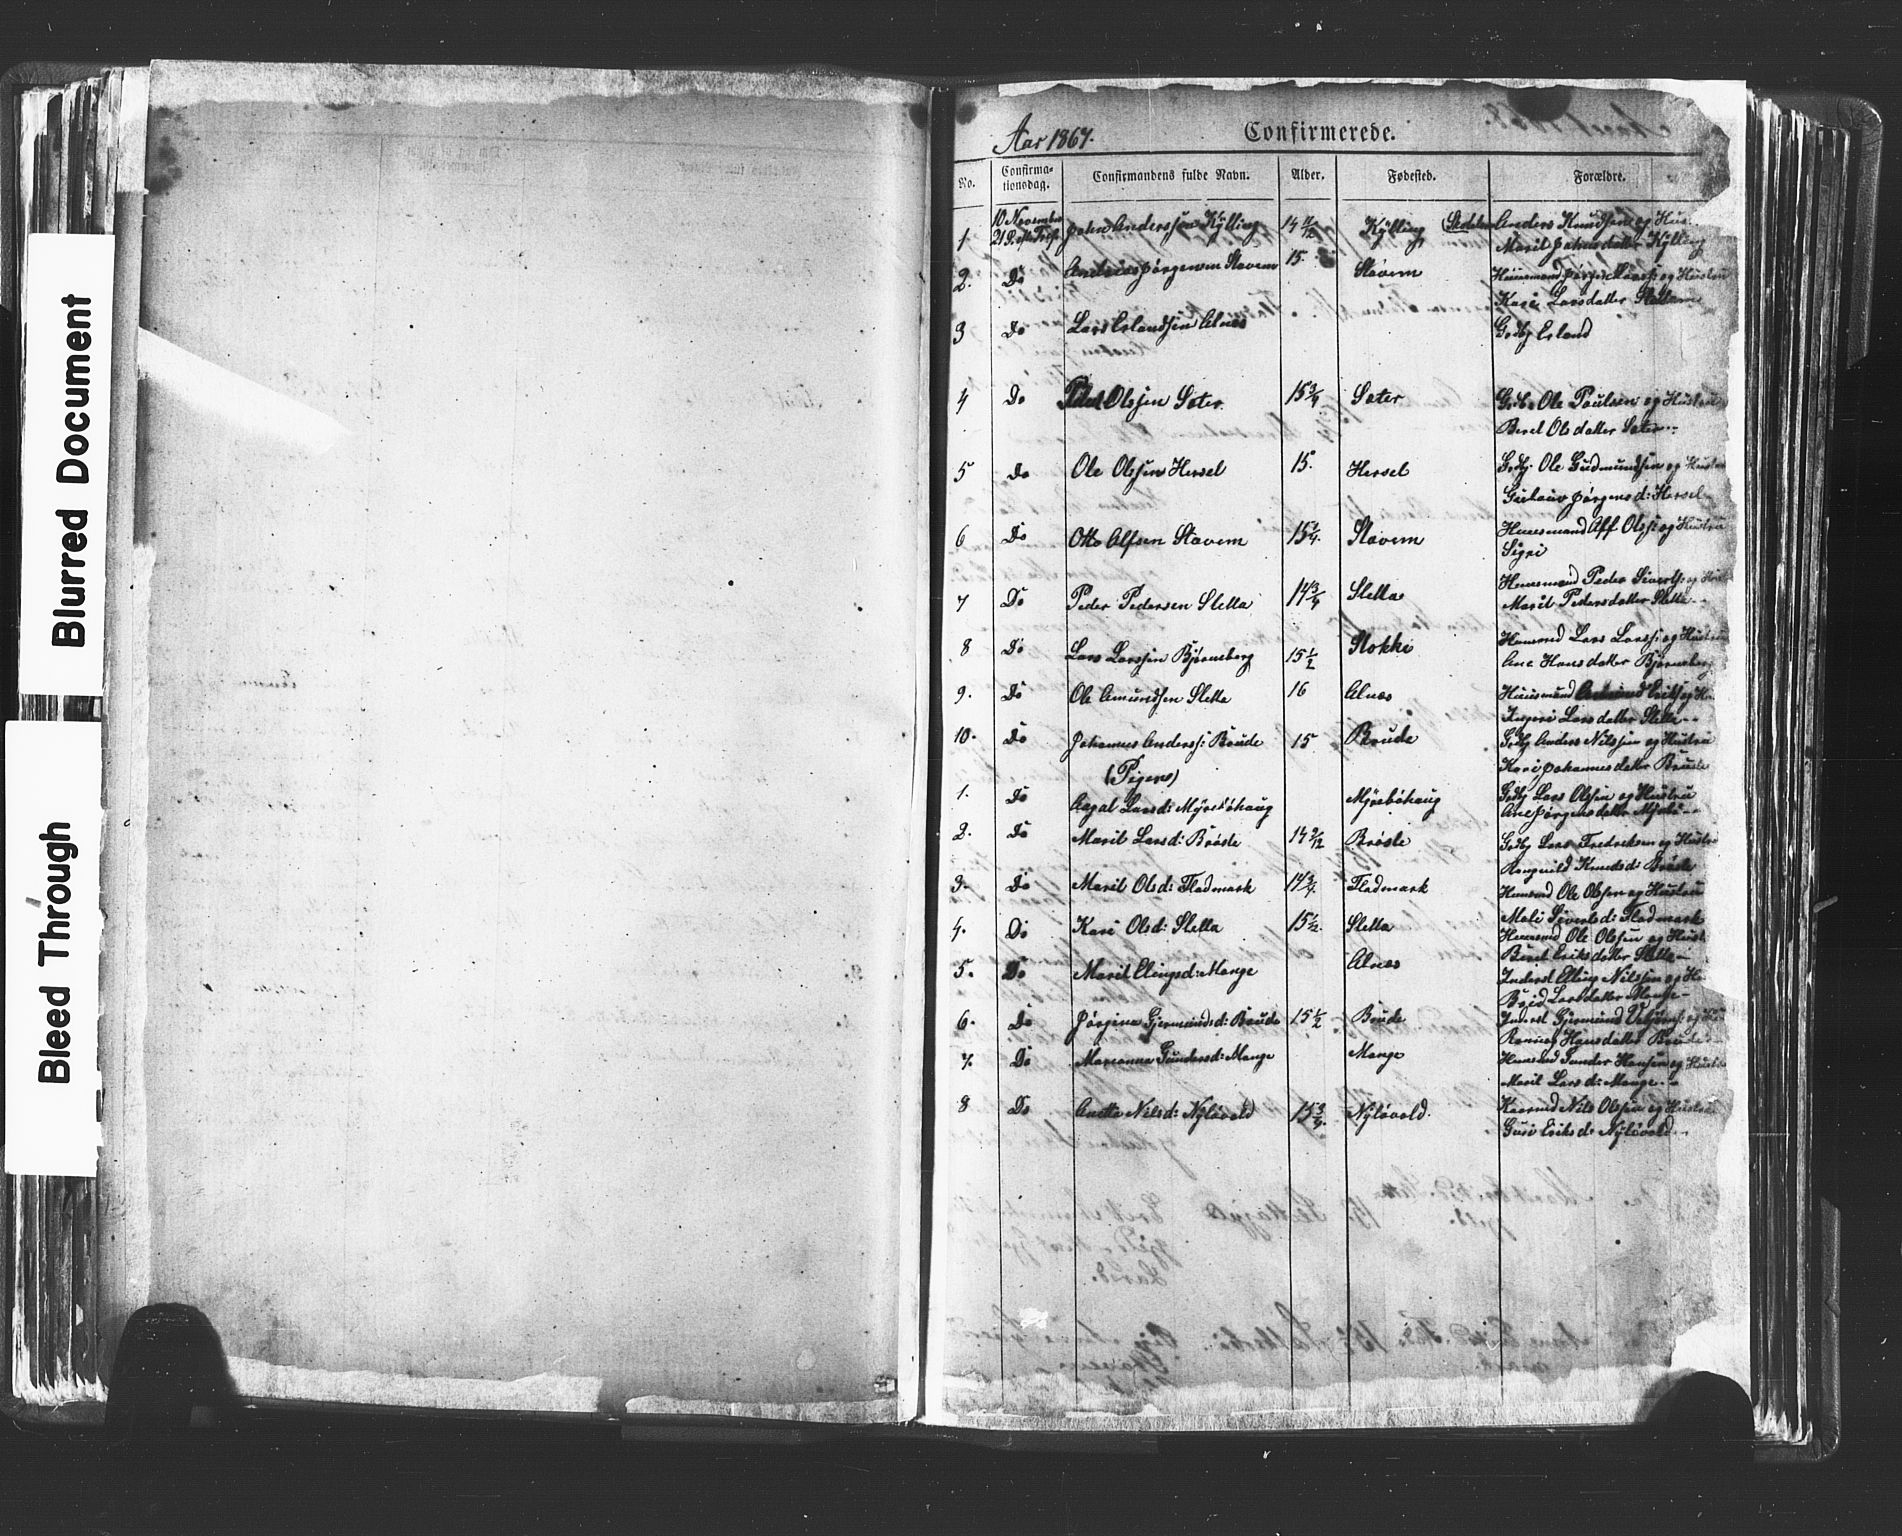 Blurred Document
Bleed Through
Aar 1867.
Confirmerede.
No.
Confirma-
tionsdag.
Confirmandens fulde Navn.
Alder.
Fødested.
Forældre.
1
10 November
21 S. eft. Tref.
John Anderssen Kÿlling
14 11/12
Kÿlling
Anders Knudsen og Hus
Marit Johnsdatter Kÿlling
2.
Do
Andreas Jørgensen Stavem
15.
Stavem
Huusmand Jørgen Larss: og Hustru
Kari Larsdatter Stavem
3
Do
Lars Erlandsen Alnæs
Grdbg Erland
4
Do
Peder Olsen Sæter
15 3/4
Sæter
Grdb. Ole Paulsen og Hustru
Beret Olsdatter Sæter
5
Do
Ole Olssen Hersel
15.
Hersel
Grdbg. Ole Gudmundsen og Hustru
Jørgensd: Hersel
6
Do
Otto Alfsen Stavem
15 3/4.
Stavem
Huusmand Alf Olss: og Hustru
Sigri
7
Do
Peder Pedersen Sletta
14 3/4
Sletta
Huusmand Peder Sivertss: og Hust
Marit Pedersdatter Sletta
8
Do
Lars Larssen Bjørneberg
15 1/2
Stokke
Huusmd Lars Larss: og Hustru
Ane Hansdatter Bjørneberg
9.
Do
Ole Amundsen Sletta
16
Alnæs
Huusmand Amund Eriks: og Hu
Ingeri Larsdatter Sletta
10.
Do
Johannes Anderss: Brude
15
Brude
Grdbg Anders Nilssen og Hustru
Kari Johannesdatter Brude
(Piger)
1.
Do
Aagat Larsd: Myrebøhaug
Mÿrebøhaug
Grdbg Lars Olssen og Hustru
Ane Jørgensdatter
2.
Do
Marit Larsd: Brøste
14 9/12
Brøste
Grdbg Lars Fredriksen og Hustru
Rangnild Knudsd: Brøste
3.
Do
Marit Olsd: Fladmark
14 3/4.
Fladmark
Huusmd Ole Olssen og Hustru
Mali Sivertsd: Fladmark
4.
Do
Kari Olsd: Sletta
15 1/2.
Sletta
Huusmd Ole Olssen og Hust
Beret Eriksdatter Sletta
5.
Do
Marit Elingsd: Monge
Alnæs
Inderst Elling Nilssen og Hu
Larsdatter Monge
6.
Do
Jørgine Gjermundsd: Brude
15 1/2
Brude
Inderst Gjermund
Hansdatter Brude
7.
Do
Marianna Gundersd: Monge
Monge
Huusmd Gunder Hansen og Hustru
Marit Larsd: Monge
8
Do
Anette Nilsd: Nÿløvold
15 3/4.
Nÿløvold.
Nils Olssen og Hustru
Guri Eriksd: Nÿløvold